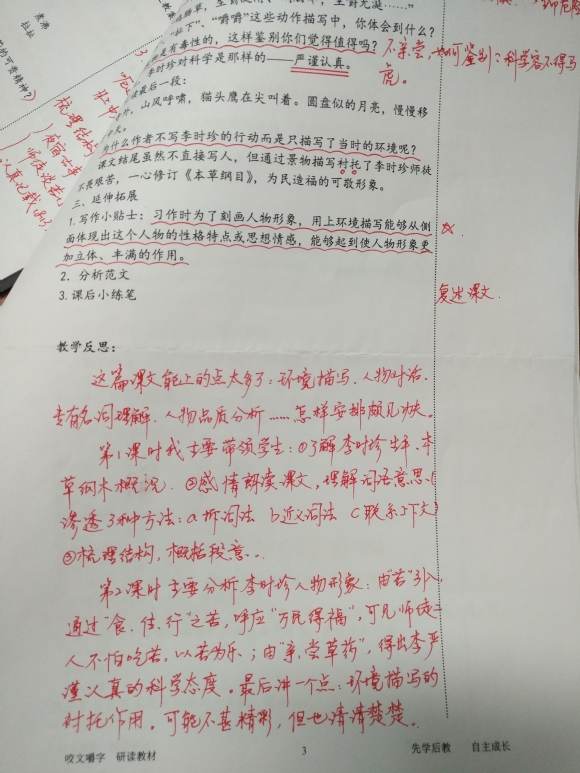 "吐下"、"嚼嚼"这些动作描写中，你体会到什么？
是有毒性的，这样鉴别你们觉得值得吗？
不亲尝，如何鉴别？科学容不得马
虎。
李时珍对科学是那样的——严谨认真。
最后一段：
山风呼啸，猫头鹰在尖叫着。圆盘似的月亮，慢慢移
为什么作者不写李时珍的行动而是只描写了当时的环境呢？
课文结尾虽然不直接写人，但通过景物描写村托了李时珍师徒
不畏艰苦，一心修订《本草纲目》，为民造福的可敬形象。
三、延伸拓展
1.写作小贴士：习作时为了刻画人物形象，用上环境描写能够从侧
面体现出这个人物的性格特点或思想情感，能够起到使人物形象更
加立体、丰满的作用。
2．分析范文
3.课后小练笔
复述课文.
教学反思：
这篇课文能上的点太多了：环境描写、人物对话、
专有名词理解、人物品质分析……怎样安排颇见功夫。
第1课时我主要带领学生：①了解李时珍生平、本
草纲木概况. ②感情朗读课文，理解词语意思(
渗透3种方法：a拆词法 b近义词法 c联系上下文)
③梳理结构，概括段意…
第2课时主要分析李时珍人物形象：由"苦"引入
通过"食、住、行"之苦，呼应"万民得福"，可见师徒二
人不怕吃苦，以苦为乐；由"亲尝草药"，得出李严
谨认真的科学态度。最后讲一个点：环境描写的
衬托作用。可能不甚精彩，但也清清楚楚。
咬文嚼字 研读教材
3
先学后教 自主成长